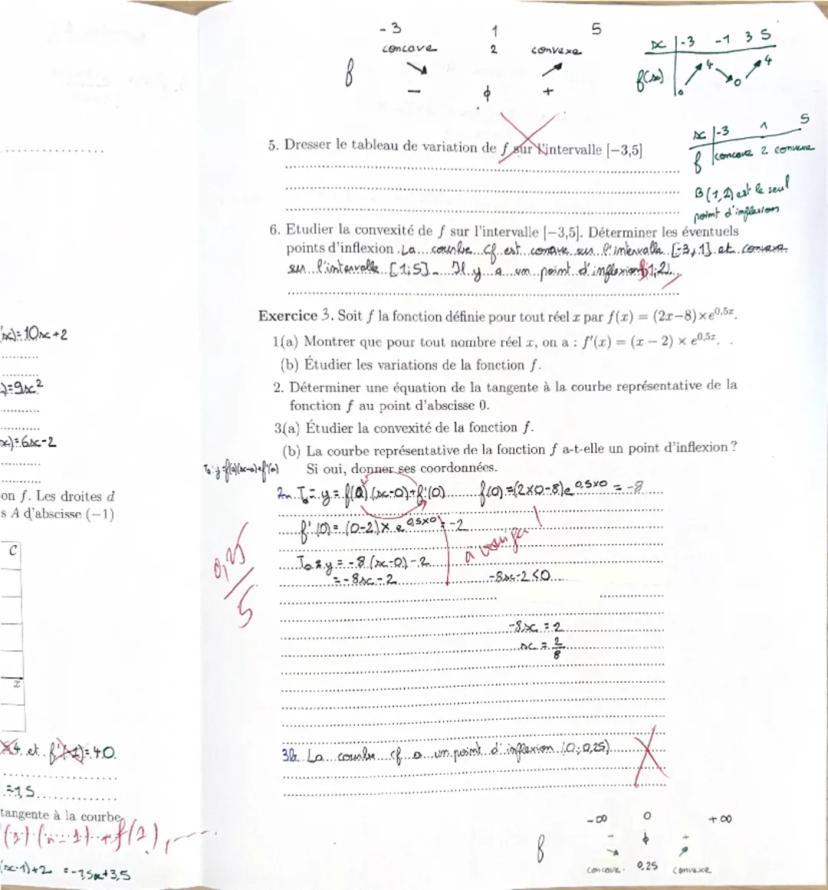 -3 1 5
concave 2 convexe
f
- ϕ +
x -3 -1 3 5
f(x) 0 4 0 4
5. Dresser le tableau de variation de f sur l'intervalle [−3,5]
x -3 1 5
f concave 2 convexe
B(1,2) est le seul
point d'inflexion
6. Etudier la convexité de f sur l'intervalle [−3,5]. Déterminer les éventuels
points d'inflexion. La courbe Cf est concave sur l'intervalle [-3,1] et convexe
sur l'intervalle [1;5]. Il y a un point d'inflexion (1;2).
Exercice 3. Soit f la fonction définie pour tout réel x par f(x) = (2x−8)×e^{0,5x}.
1(a) Montrer que pour tout nombre réel x, on a : f′(x) = (x − 2) × e^{0,5x}.
(b) Étudier les variations de la fonction f.
2. Déterminer une équation de la tangente à la courbe représentative de la
fonction f au point d'abscisse 0.
3(a) Étudier la convexité de la fonction f.
(b) La courbe représentative de la fonction f a-t-elle un point d'inflexion ?
Si oui, donner ses coordonnées.
T₀: y=f(a)(x-a)+f'(a)
T₀= y = f(0)(x-0)+f'(0) f(0)=(2×0-8)e^{0,5×0} = -8
f'(0)= (0-2)× e^{0,5×0} = -2
T₀: y = -8(x-0)-2
= -8x-2 -8x-2<0
-8x = 2
x = 2/8
0,25/5
3b. La courbe cf a un point d'inflexion (0;0,25)
-∞ 0 +∞
f - ϕ +
concave 0,25 convexe
(x)=10x+2
)=9x²
x)=6x-2
on f. Les droites d
s A d'abscisse (−1)
C
x
4 et f'(-1)=40.
=1,5
tangente à la courbe
(x-1)+2 = -1,5x+3,5